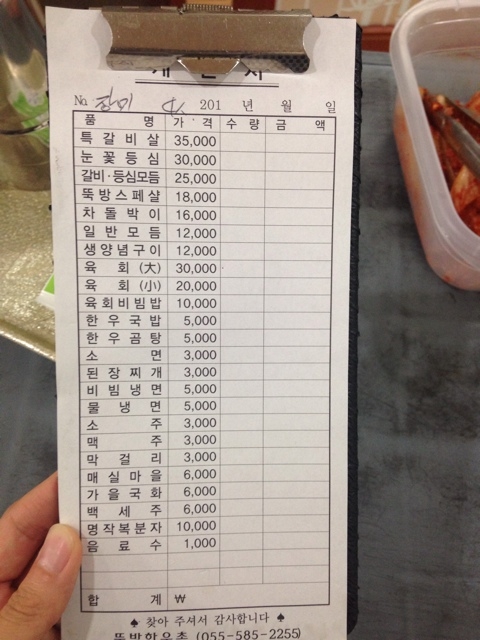 계 산 서
No 장미 4 201 년 월 일
품 명 가 격 수 량 금 액
특 갈 비 살 35,000
눈 꽃 등 심 30,000
갈비·등심모듬 25,000
뚝 방 스 페 샬 18,000
차 돌 박 이 16,000
일 반 모 듬 12,000
생 양 념 구 이 12,000
육 회 (大) 30,000
육 회 (小) 20,000
육 회 비 빔 밥 10,000
한 우 국 밥 5,000
한 우 곰 탕 5,000
소 면 3,000
된 장 찌 개 3,000
비 빔 냉 면 5,000
물 냉 면 5,000
소 주 3,000
맥 주 3,000
막 걸 리 3,000
매 실 마 을 6,000
가 을 국 화 6,000
백 세 주 6,000
명 작 복 분 자 10,000
음 료 수 1,000
합 계 ₩
♠ 찾아 주셔서 감사합니다 ♠
뚝방한우촌 (055-585-2255)